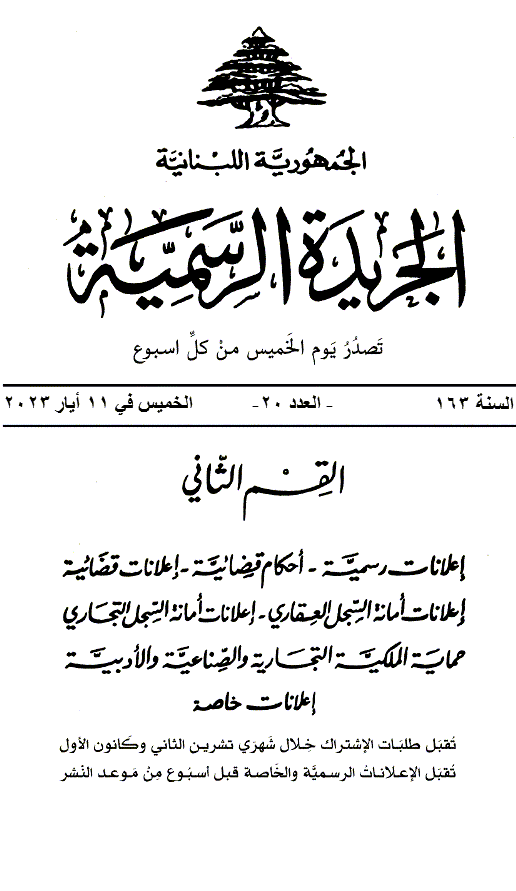 الجمهورية اللبنانية
الجريدة الرسمية
تصدر يوم الخميس من كل اسبوع
السنة ١٦٣ - العدد ٢٠- الخميس في ١١ أيار ٢٠٢٣
القسم الثاني
إعلانات رسمية - أحكام قضائية - إعلانات قضائية
إعلانات أمانة السجل العقاري - إعلانات أمانة السجل التجاري
حماية الملكية التجارية والصناعية والأدبية
إعلانات خاصة
تقبل طلبات الإشتراك خلال شهري تشرين الثاني وكانون الأول
تقبل الإعلانات الرسمية والخاصة قبل أسبوع من موعد النشر